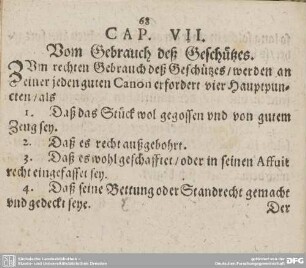 68
CAP. VII.
Vom Gebrauch deß Geschützes.
ZVm rechten Gebrauch deß Geschützes/werden an
einer jeden guten Canon erfordert vier Hauptpun-
cten/als
1. Daß das Stück wol gegossen vnd von gutem
Zeug sey.
2. Daß es recht außgebohrt.
3. Daß es wohl geschafftet/oder in seinen Affuit
recht eingefasset sey.
4. Daß seine Bettung oder Standrecht gemacht
vnd gedeckt seye.
Der